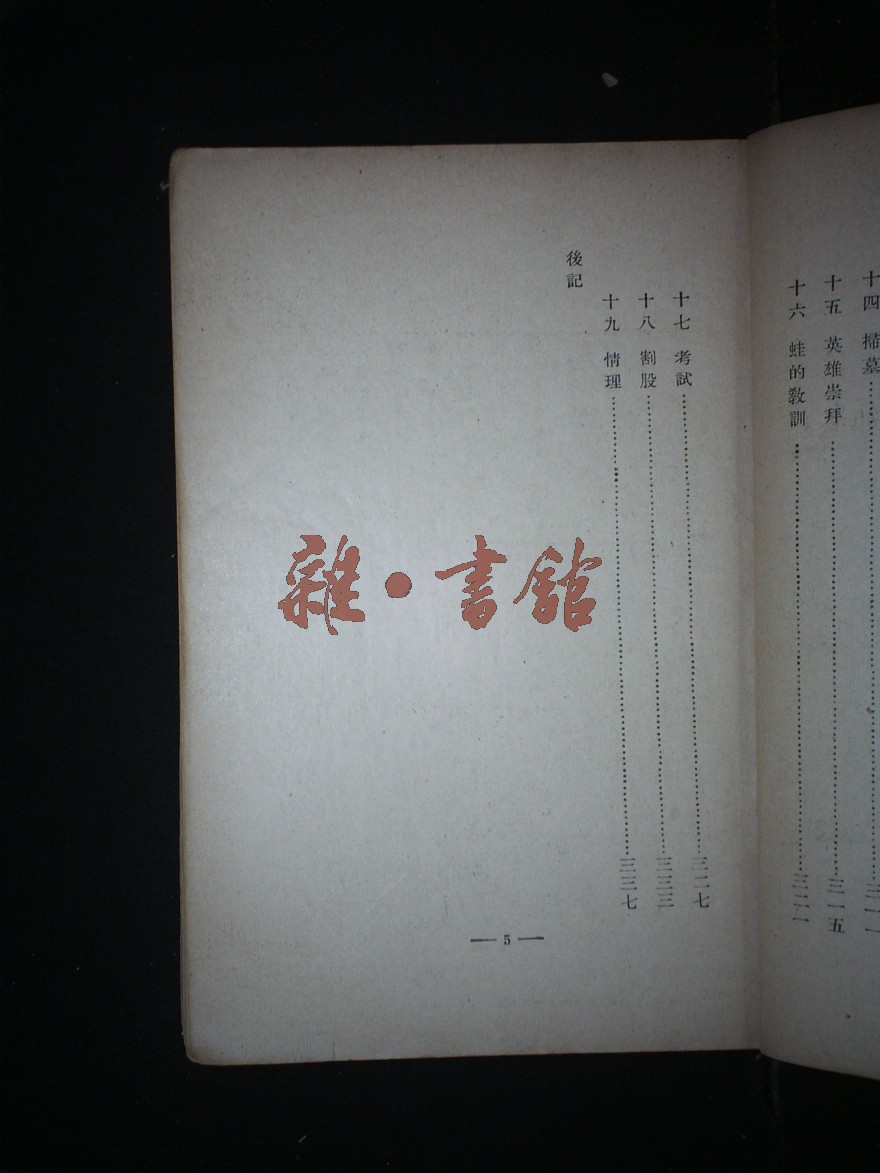 十四 掃墓
十五 英雄崇拜……三一五
十六 蛙的教訓……三二一
十七 考試……三二七
十八 割股……三三三
十九 情理……三三七
後記
— 5 —
雜·書館